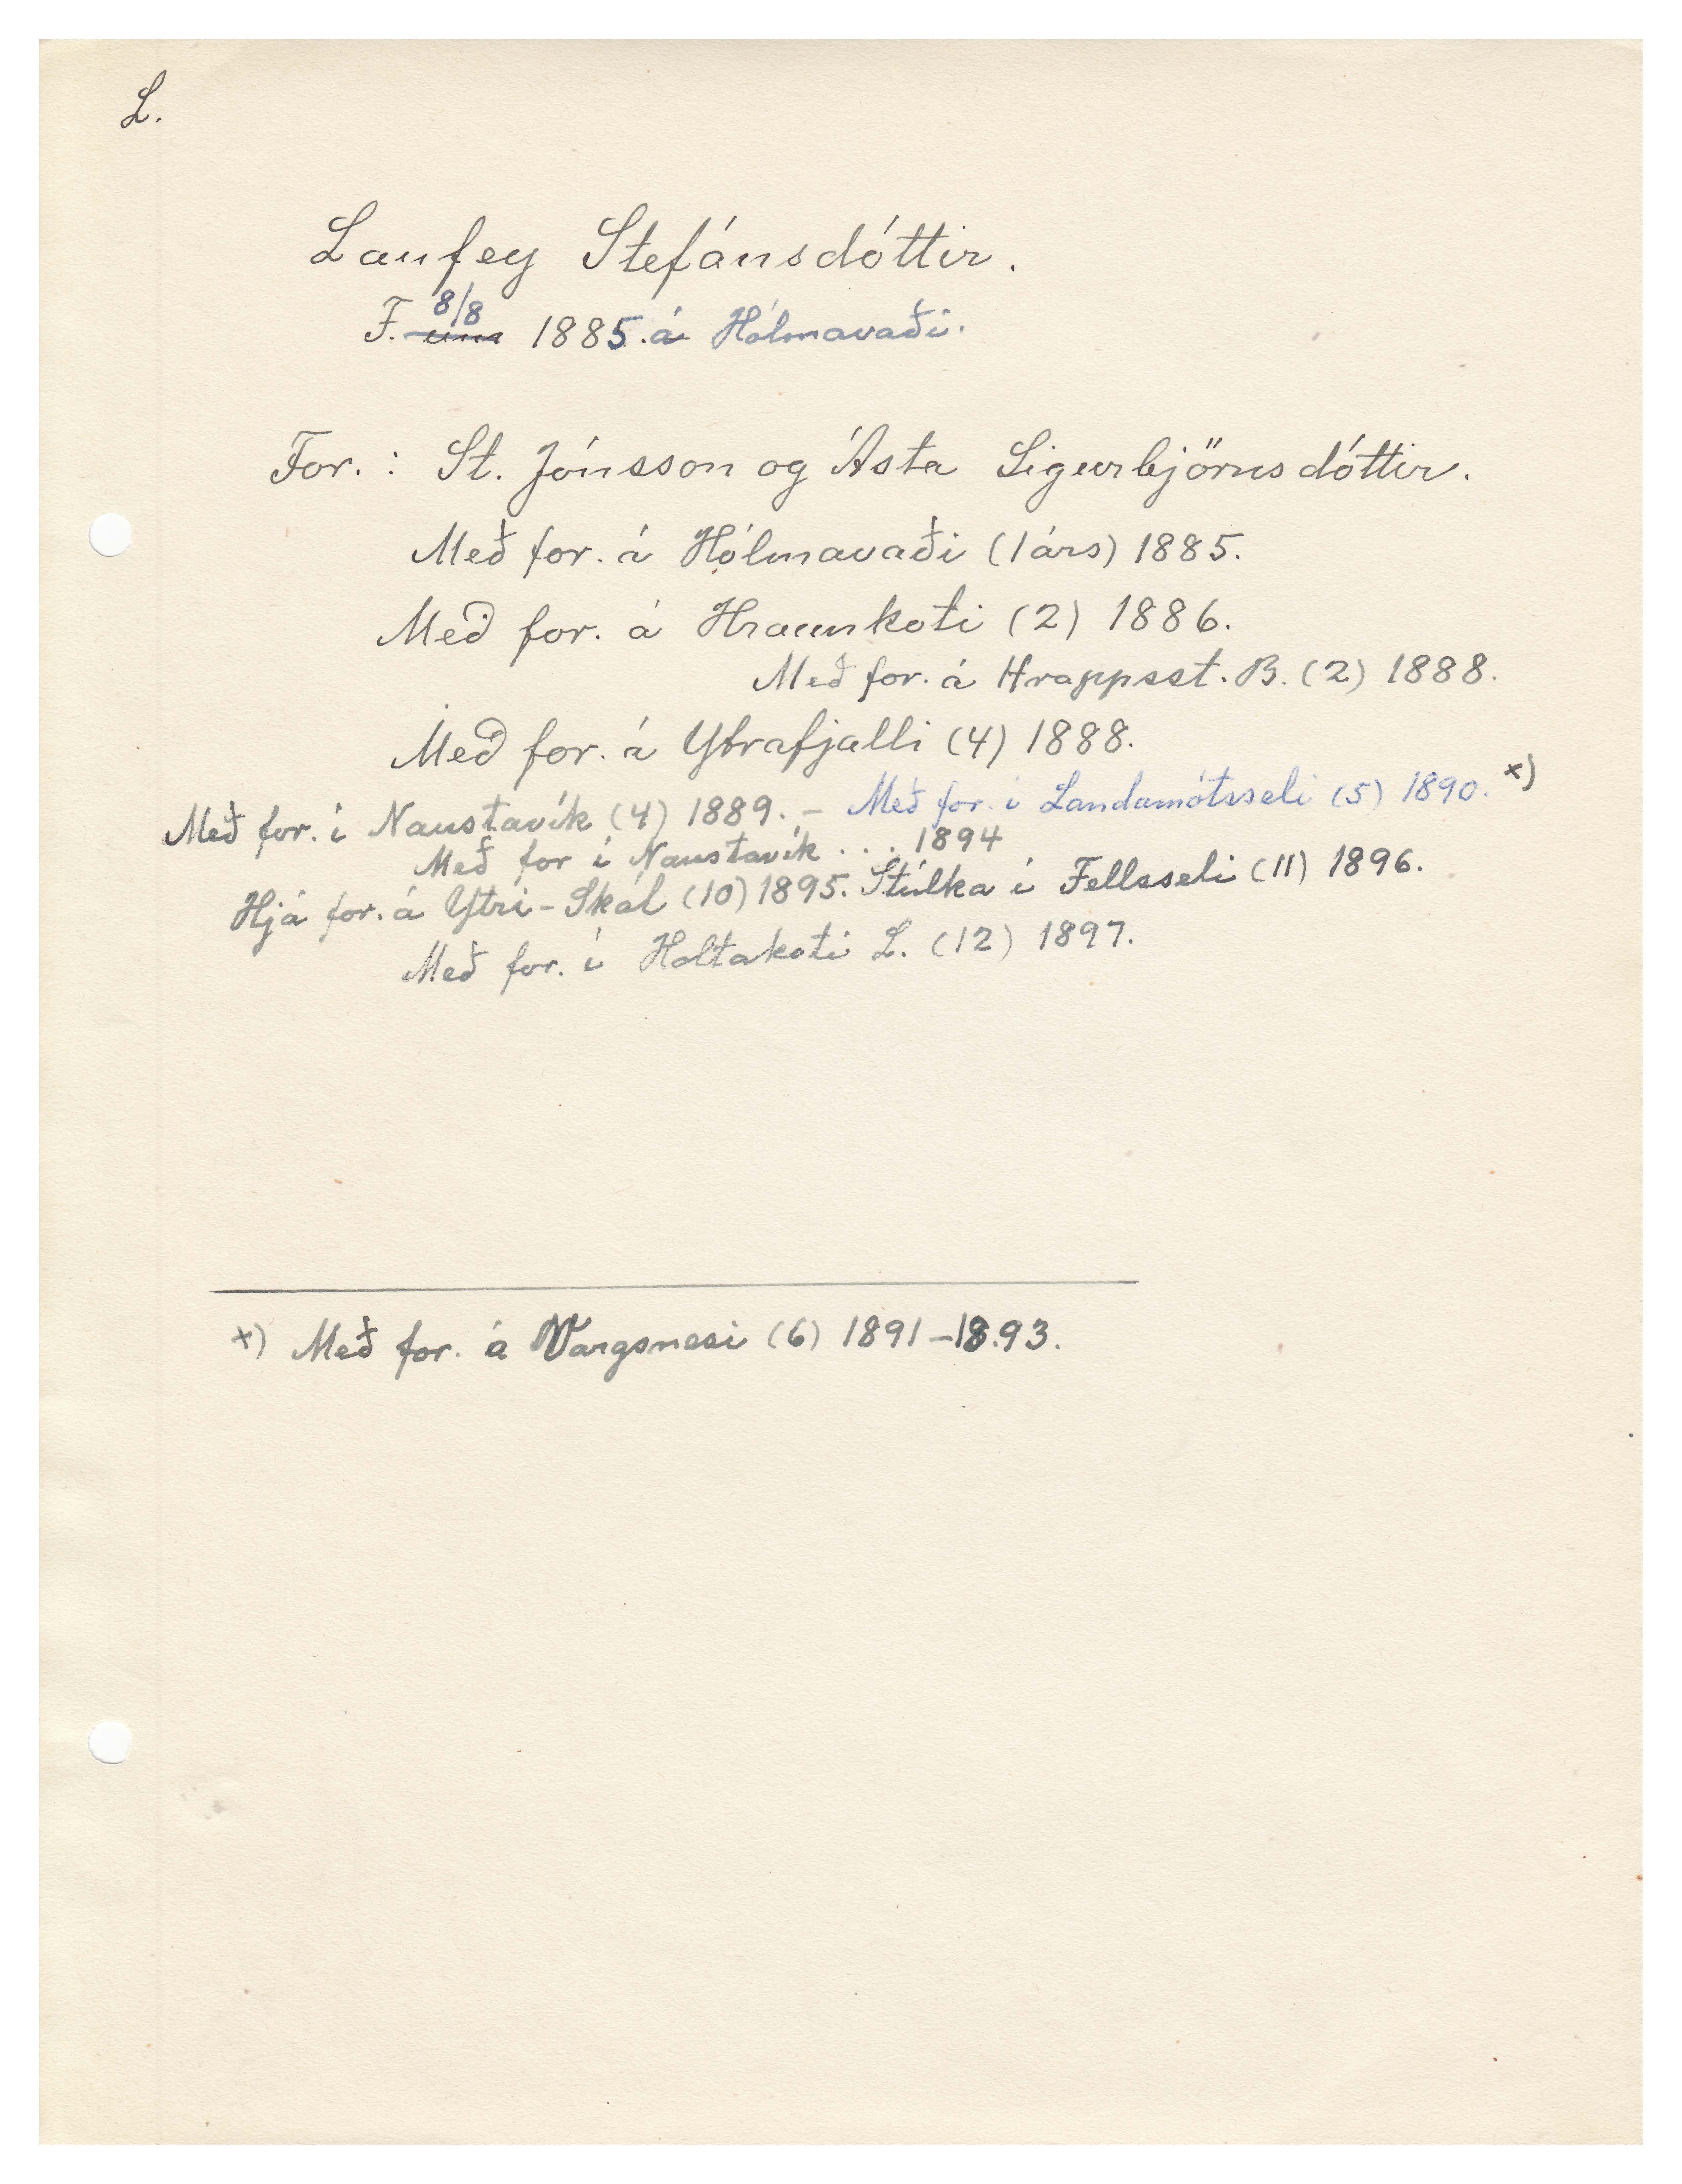 L.
Laufey Stefánsdóttir.
F. 8/8 1885. á Hólmavaði.
For. : St. Jónsson og Ásta Sigurbjörnsdóttir.
Með for. á Hólmavaði (1 árs) 1885.
Með for. á Hraunkoti (2) 1886.
Með for. á Hrappsst. B. (2) 1888.
Með for. á Ytrafjalli (4) 1888.
Með for. í Naustavík (4) 1889. – Með for. í Landamótsseli (5) 1890. x)
Með for í Naustavík . . . 1894
Hjá for. á Ytri-Skál (10) 1895. Stúlka í Fellsseli (11) 1896.
Með for. í Holtakoti L. (12) 1897.
x) Með for. á Vargsnesi (6) 1891–18.93.